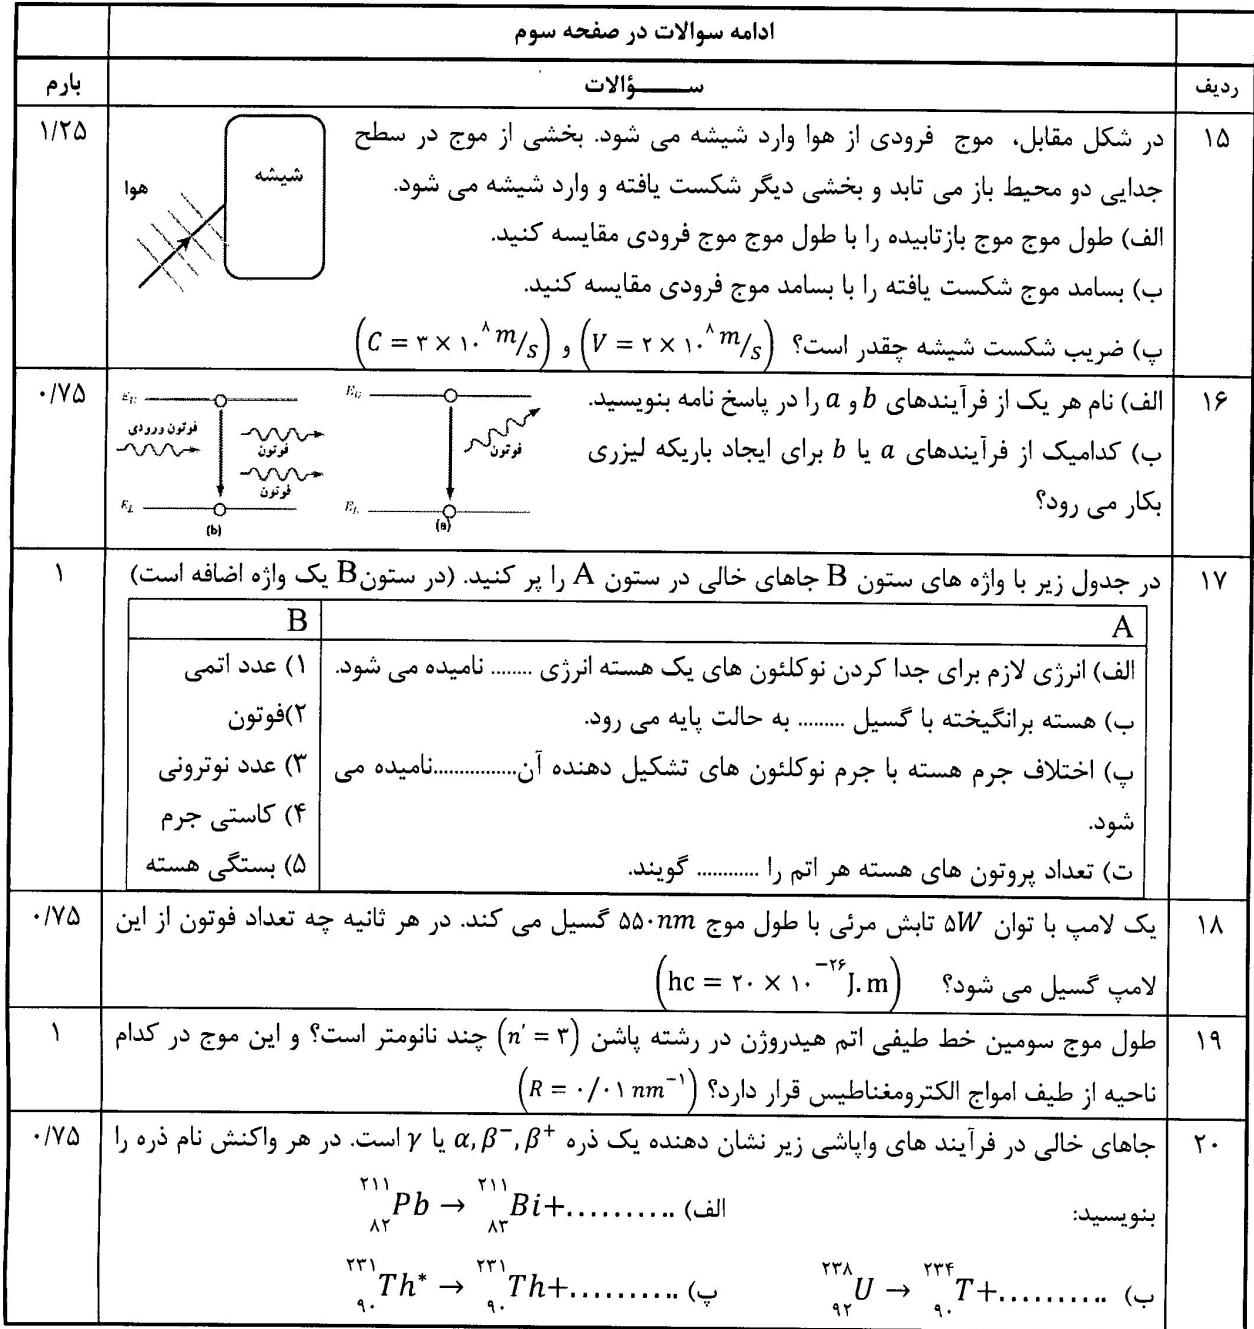 ادامه سوالات در صفحه سوم
ردیف ســـــؤالات بارم
۱۵ در شکل مقابل، موج فرودی از هوا وارد شیشه می شود. بخشی از موج در سطح ۱/۲۵
جدایی دو محیط باز می تابد و بخشی دیگر شکست یافته و وارد شیشه می شود.
الف) طول موج موج بازتابیده را با طول موج موج فرودی مقایسه کنید.
ب) بسامد موج شکست یافته را با بسامد موج فرودی مقایسه کنید.
پ) ضریب شکست شیشه چقدر است؟ (V = ۲ × ۱۰^۸ m/s) و (C = ۳ × ۱۰^۸ m/s)
شیشه
هوا
۱۶ الف) نام هر یک از فرآیندهای b و a را در پاسخ نامه بنویسید. ۰/۷۵
ب) کدامیک از فرآیندهای a یا b برای ایجاد باریکه لیزری
بکار می رود؟
E_U
فوتون
E_L
(a)
E_U
فوتون ورودی
فوتون
فوتون
E_L
(b)
۱۷ در جدول زیر با واژه های ستون B جاهای خالی در ستون A را پر کنید. (در ستون B یک واژه اضافه است) ۱
A B
الف) انرژی لازم برای جدا کردن نوکلئون های یک هسته انرژی ........ نامیده می شود. ۱) عدد اتمی
ب) هسته برانگیخته با گسیل ......... به حالت پایه می رود. ۲)فوتون
پ) اختلاف جرم هسته با جرم نوکلئون های تشکیل دهنده آن................نامیده می ۳) عدد نوترونی
شود. ۴) کاستی جرم
ت) تعداد پروتون های هسته هر اتم را ............ گویند. ۵) بستگی هسته
۱۸ یک لامپ با توان ۵W تابش مرئی با طول موج ۵۵۰nm گسیل می کند. در هر ثانیه چه تعداد فوتون از این ۰/۷۵
لامپ گسیل می شود؟ (hc = ۲۰ × ۱۰^−۲۶ J.m)
۱۹ طول موج سومین خط طیفی اتم هیدروژن در رشته پاشن (n′ = ۳) چند نانومتر است؟ و این موج در کدام ۱
ناحیه از طیف امواج الکترومغناطیس قرار دارد؟ (R = ۰/۰۱ nm^−۱)
۲۰ جاهای خالی در فرآیند های واپاشی زیر نشان دهنده یک ذره α, β^−, β^+ یا γ است. در هر واکنش نام ذره را ۰/۷۵
بنویسید: الف) ^۲۱۱_۸۲Pb → ^۲۱۱_۸۳Bi+...........
ب) ^۲۳۸_۹۲U → ^۲۳۴_۹۰T+........... پ) ^۲۳۱_۹۰Th* → ^۲۳۱_۹۰Th+...........